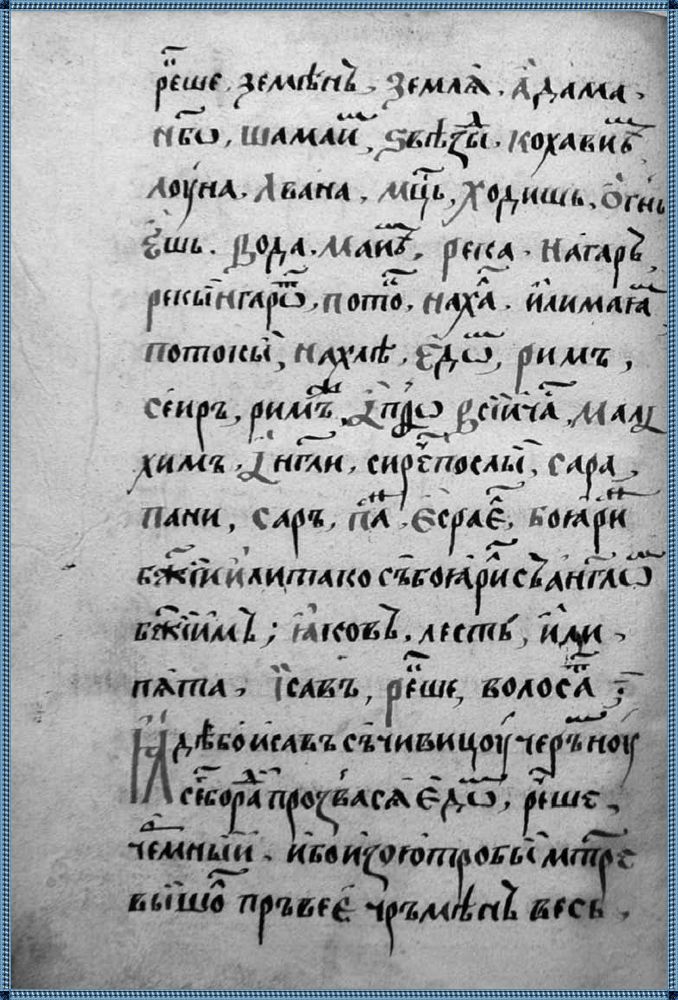 рⷱ҇еше, землѣнъ, землѧ, а҆дама,
нб҃ѡ, шамаиⷨ, ѕвѣзⷣы, кохавиⷨъ
лоуна, лвана, мцⷭ҇ь, ходишь, ѻ҆гнь
е҆шь. вода. маиⷨъ, река. нагаръ,
рекы҆ нгарѡⷮ, потоⷦ, нахаⷧ. и҆ли маꙗⷨ
потокы҆, нахлѣ, е҆дѡⷨ, римъ,
сеиръ, римъ, малц
химъ, а҆нгли, сирⷱ҇е послы҆, сара
пани, саръ, е҆сраеⷧ҇, боꙗри
бж҃іи и҆ли тако съ боꙗры съ англѡⷨ
бж҃іимъ; ꙗ҆ковъ, лесть, и҆ли,
пѧта, ісавъ, рⷱ҇еше, волосаⷮ;
Идѣ бо исавъ съчивицоу черⷨъноу
себораⷣ прозвасѧ е҆дѡⷨ, рⷱ҇еше,
чеⷬмный. ибо изоютробы мт҃ре
вышоⷧ пръвее҆ чръмѣнъ весь,